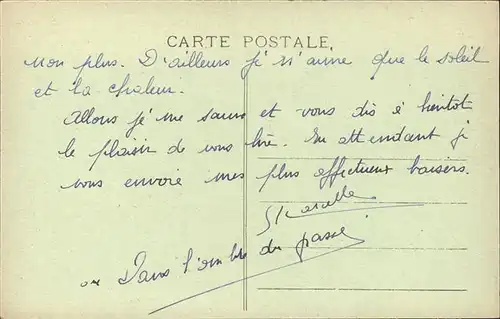 CARTE POSTALE
non plus. D'ailleurs je n'aime que le soleil
et la chaleur.
Allons je me sauve et vous dis à bientôt
le plaisir de vous lire. En attendant je
vous envoie mes plus affectueux baisers.
ou Dans l'ombre du passé